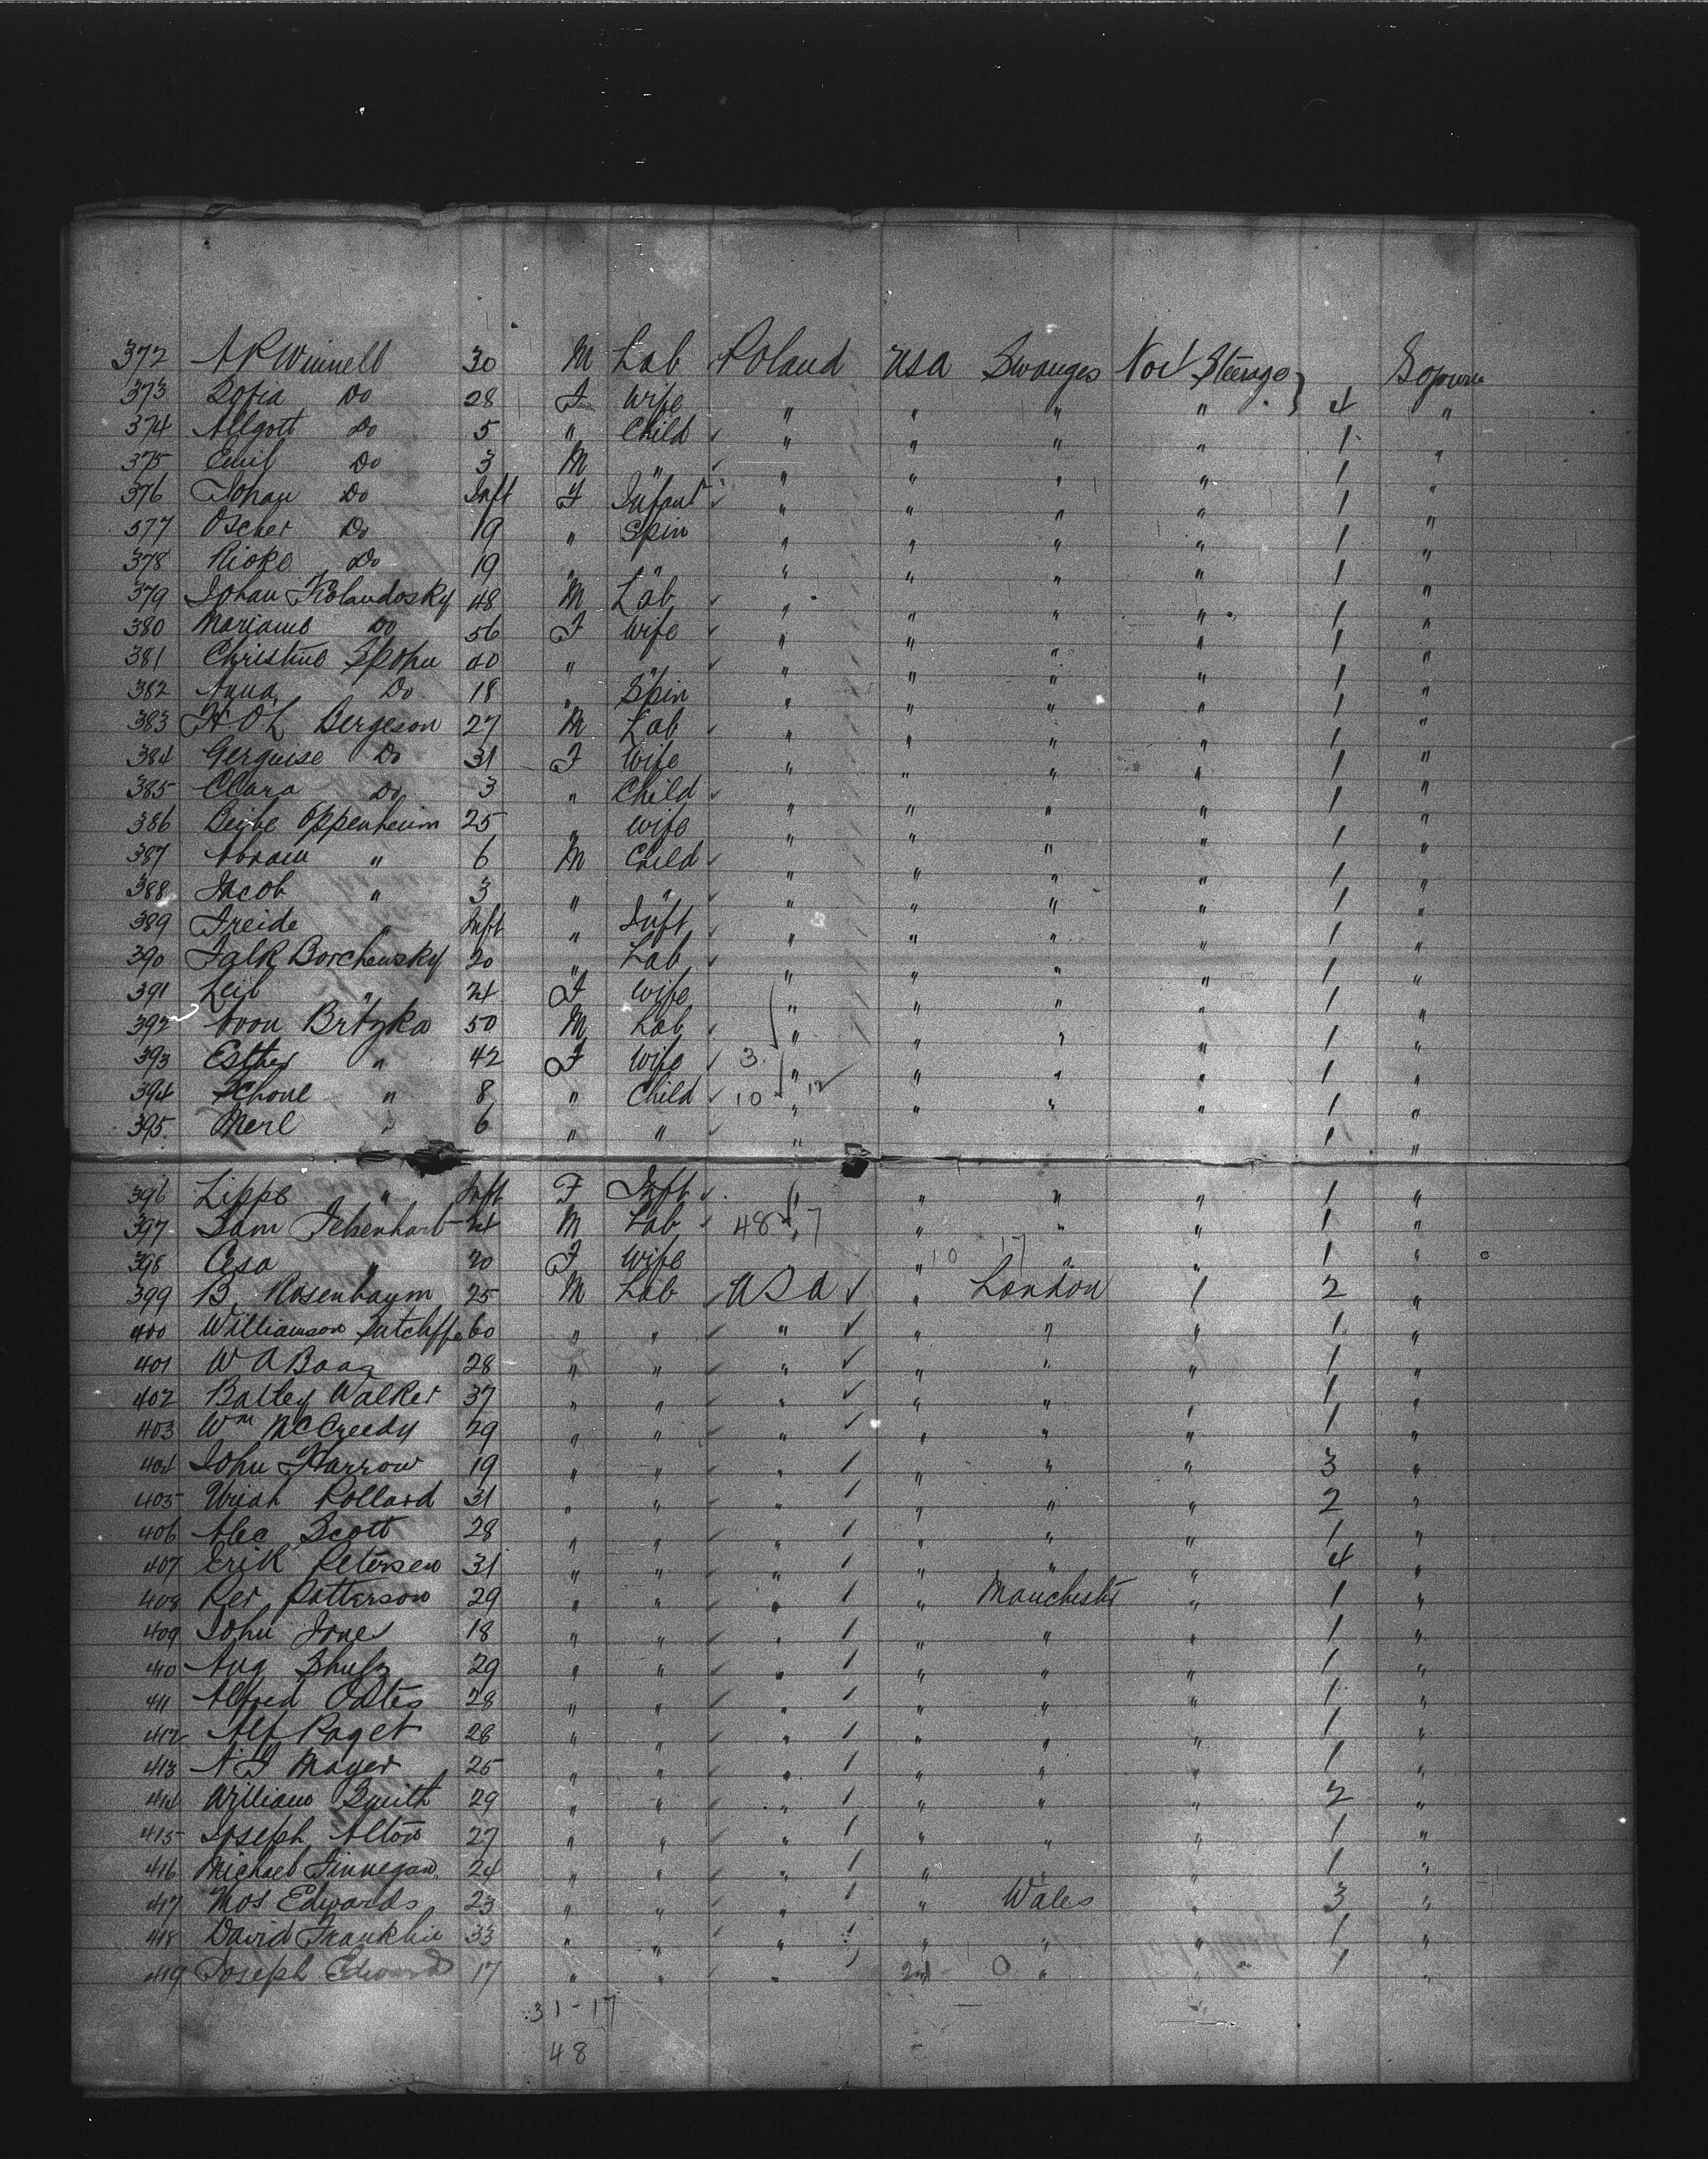 372 A P Winnell 30 M Lab Poland USA Swanges No 1 Steerage Sojourn
373 Sofia Do 28 F Wife " " " " 4 "
374 Allgott Do 5 " Child " " " " 1 "
375 Emil Do 3 M " " " " " 1 "
376 Johan Do Inft F Infant " " " " 1 "
377 Oscher Do 19 " Spin " " " " 1 "
378 Rioke Do 19 " " " " " " 1 "
379 Johan Kolandosky 48 M Lab " " " " 1 "
380 Do 56 F Wife " " " " 1 "
381 Christine Spohn 40 " " " " " " 1 "
382 Anna Do 18 " Spin " " " " 1 "
383 H O L Bergeson 27 M Lab " " " " 1 "
384 Do 31 F Wife " " " " 1 "
385 Clara Do 3 " Child " " " " 1 "
386 Beibe Oppenheim 25 " Wife " " " " 1 "
387 Abram " 6 M Child " " " " 1 "
388 Jacob " 3 " " " " " " 1 "
389 Freide " Inft " Inft " " " " 1 "
390 Falk Borchewsky 20 " Lab " " " " 1 "
391 Leib " 24 F Wife " " " " 1 "
392 Aron Britzka 50 M Lab " " " " 1 "
393 Esther " 42 F Wife 3 " " " " 1 "
394 Schone " 8 " Child 10 " 12 " " " 1 "
395 Merl " 6 " " " 1 "
396 Lippe " Inft F Inft " " " " 1 "
397 Sam 24 M Lab 48 " 17 " " " 1 "
398 " 20 F Wife " 10 17 " " 1 "
399 B Rosenbaum 25 M Lab USA " London 1 2 "
400 Williamson Sutcliffe 60 " " " " " " 1 "
401 W A Boag 28 " " " " " " 1 "
402 Batley Walker 37 " " " " " " 1 "
403 Wm McCreedy 29 " " " " " " 1 "
404 John Harrow 19 " " " " " " 3 "
405 Uriah Pollard 31 " " " " " " 2 "
406 Alec Scott 28 " " " " " " 1 "
407 Erik Petersen 31 " " " " " " 4 "
408 Patterson 29 " " " " Manchestr " 1 "
409 John Jones 18 " " " " " " 1 "
410 Aug Shulz 29 " " " " " " 1 "
411 Alfred Oates 28 " " " " " " 1 "
412 Alf Paget 28 " " " " " " 1 "
413 Mayer 25 " " " " " " 1 "
414 William Smith 29 " " " " " " 2 "
415 Joseph Alton 27 " " " " " " 1 "
416 Michael Finnegan 24 " " " " " 1 "
417 Thos Edwards 23 " " " " Wales " 3 "
418 David Franklin 33 " " " " " " 1 "
419 Joseph Edwards 17 " " " 24 0 " " 1 "
31-17
48